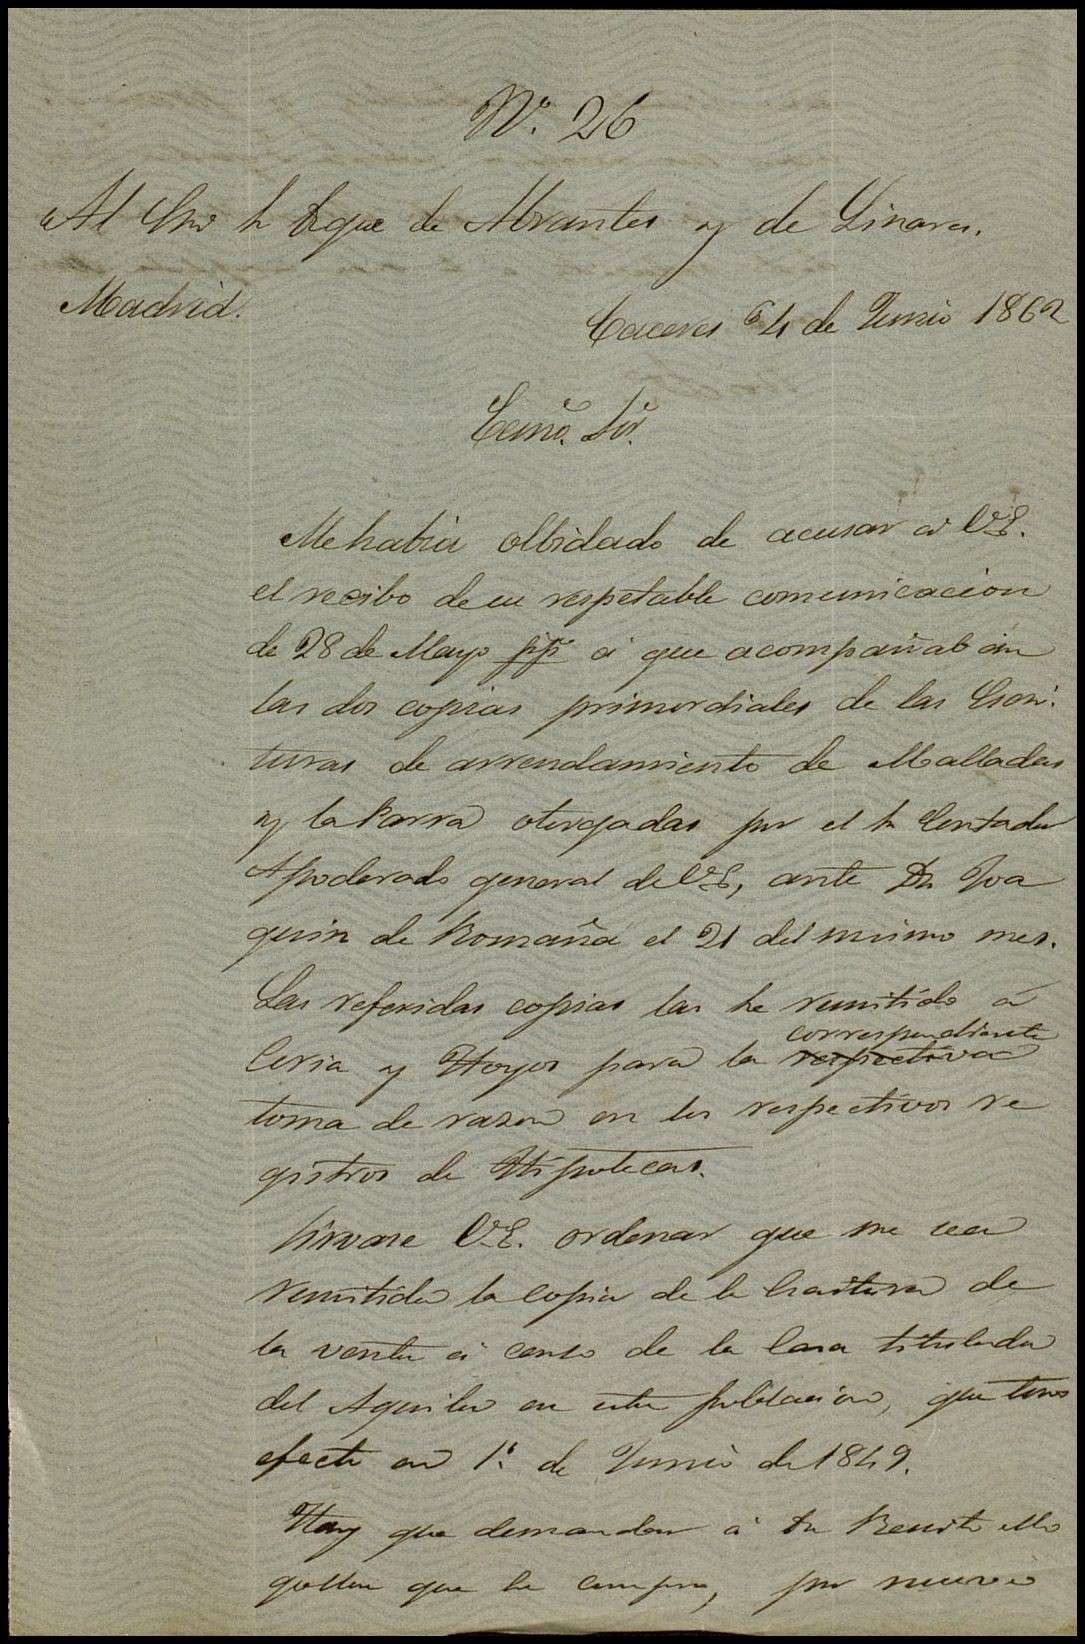 N.º 26
Al Exmo Sr Duque de Abrantes y de Linares.
Madrid.
Caceres 4 de Junio 1862
Exmo. Sor.
Me habia olbidado de acusar á V.E.
el recibo de su respetable comunicacion
de 28 de Mayo pp.º á que acompañaban
las dos copias primordiales de las Escri-
turas de arrendamiento de Malladas
y la Parra otorgadas por el Sr Contador
Apoderado general de V.E, ante Dn Joa
quin de Romaña el 21 del mismo mes.
Las referidas copias las he remitido á
correspondiente
Coria y Hoyos para la respectiva
toma de razon en los respectivos re
gistros de Hipotecas.
Sirvase V.E. ordenar que me sea
remitida la copia de la Escritura de
la venta á censo de la Casa titulada
del Aguila en esta poblacion, que tuvo
efecto en 1.º de Junio de 1849.
Hay que demandar á Dn Benito Mo
gollon que la compró, por nueve